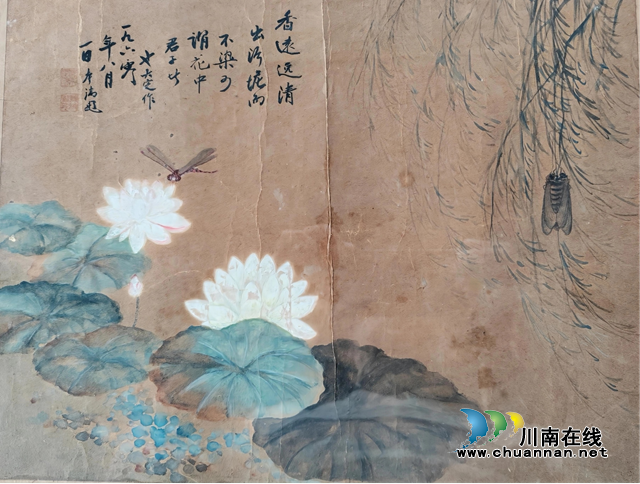 香遠逸清
出淤泥而
不染可
謂花中
君子
作
一九六
年八月
一日 題
川南在线
www.chuannan.net